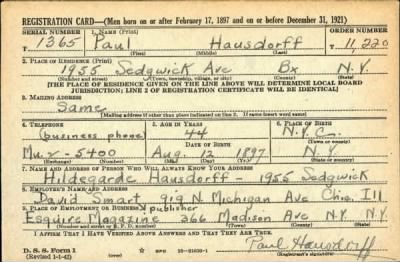 REGISTRATION CARD—(Men born on or after February 17, 1897 and on or before December 31, 1921)
SERIAL NUMBER 1. NAME (Print) ORDER NUMBER
T 1365 Paul Hausdorff T 11,220
(First) (Middle) (Last)
2. PLACE OF RESIDENCE (Print)
1955 Sedgwick Ave Bx N.Y.
(Number and street) (Town, township, village, or city) (County) (State)
[THE PLACE OF RESIDENCE GIVEN ON THE LINE ABOVE WILL DETERMINE LOCAL BOARD
JURISDICTION; LINE 2 OF REGISTRATION CERTIFICATE WILL BE IDENTICAL]
3. MAILING ADDRESS
Same
[Mailing address if other than place indicated on line 2. If same insert word same]
4. TELEPHONE 5. AGE IN YEARS 6. PLACE OF BIRTH
(business phone) 44 N.Y.C.
DATE OF BIRTH (Town or county)
Mu. 2-5400 Aug. 12 1897 N.Y.
(Exchange) (Number) (Mo.) (Day) (Yr.) (State or country)
7. NAME AND ADDRESS OF PERSON WHO WILL ALWAYS KNOW YOUR ADDRESS
Hildegarde Hausdorff - 1955 Sedgwick
8. EMPLOYER'S NAME AND ADDRESS
David Smart 919 N Michigan Ave Chic. Ill
9. PLACE OF EMPLOYMENT OR BUSINESS publisher
Esquire Magazine 366 Madison Ave N.Y. N.Y.
(Number and street or R. F. D. number) (Town) (County) (State)
I AFFIRM THAT I HAVE VERIFIED ABOVE ANSWERS AND THAT THEY ARE TRUE.
D. S. S. Form 1
(Revised 1-1-42)
Paul Hausdorff
(Registrant's signature)